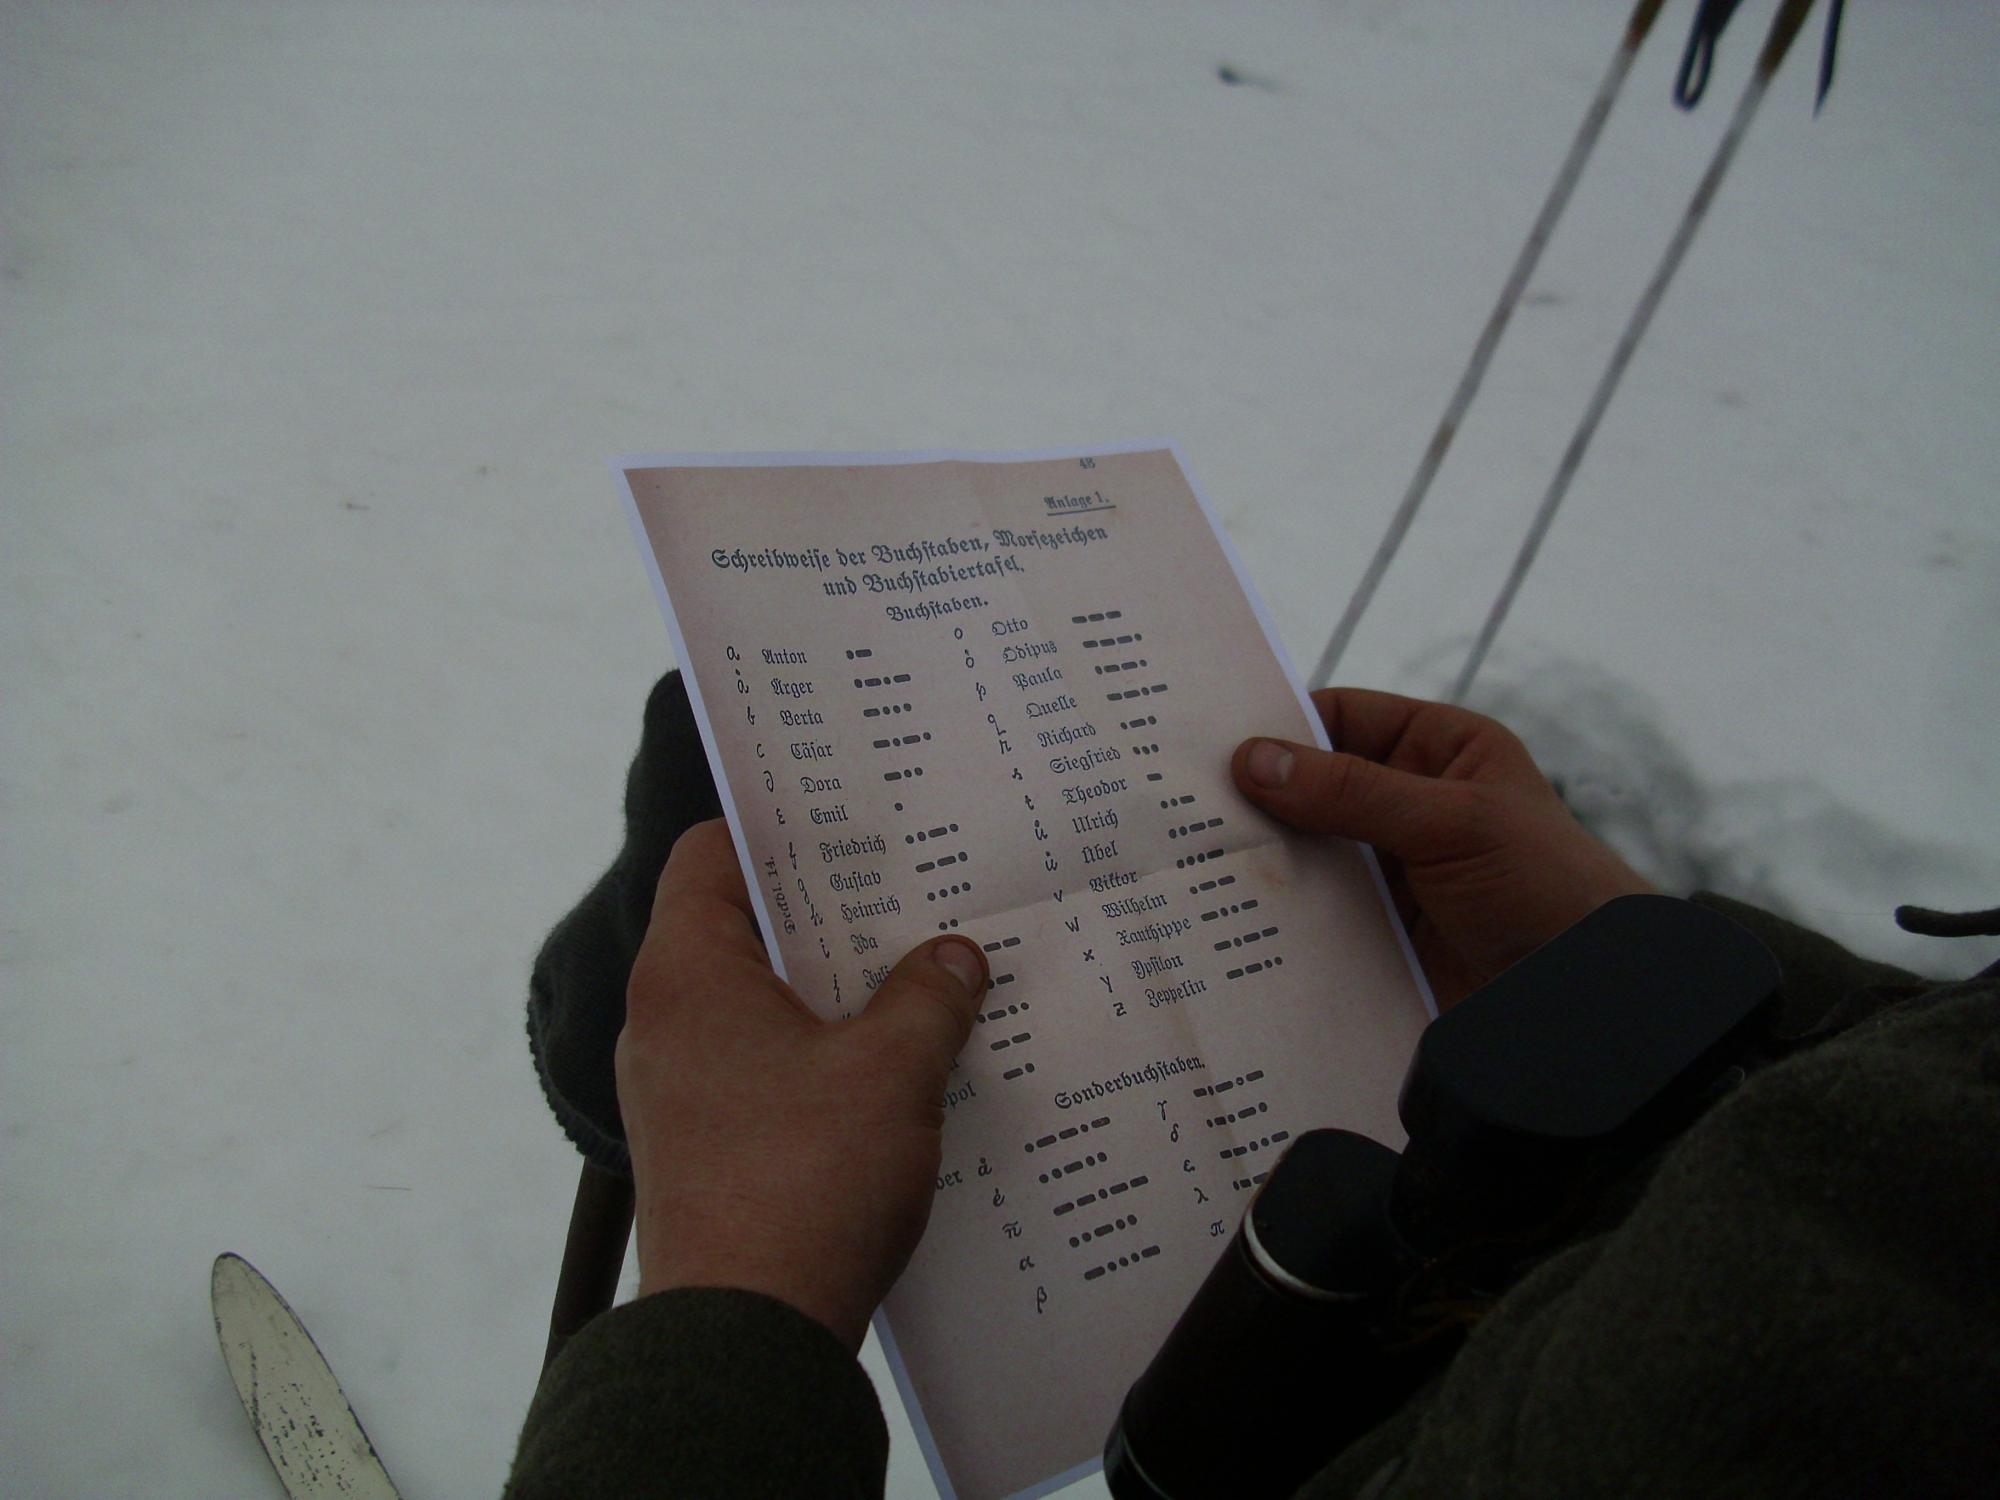 48
Anlage 1.
Schreibweise der Buchstaben, Morsezeichen
und Buchstabiertafel.
Buchstaben.
a Anton ·–
ä Ärger ·–·–
b Berta –···
c Cäsar –·–·
d Dora –··
e Emil ·
f Friedrich ··–·
g Gustav ––·
h Heinrich ····
i Ida ··
j Juli
pol –·
o Otto –––
ö Ödipus –––·
p Paula ·––·
q Quelle ––·–
r Richard ·–·
s Siegfried ···
t Theodor –
u Ulrich ··–
ü Übel ··––
v Viktor ···–
w Wilhelm ·––
x Xanthippe –··–
y Ypsilon –·––
z Zeppelin ––··
Deckbl. 14.
Sonderbuchstaben.
der å ·––·–
é ··–··
ñ ––·––
α
β
γ
δ
ε
λ
π